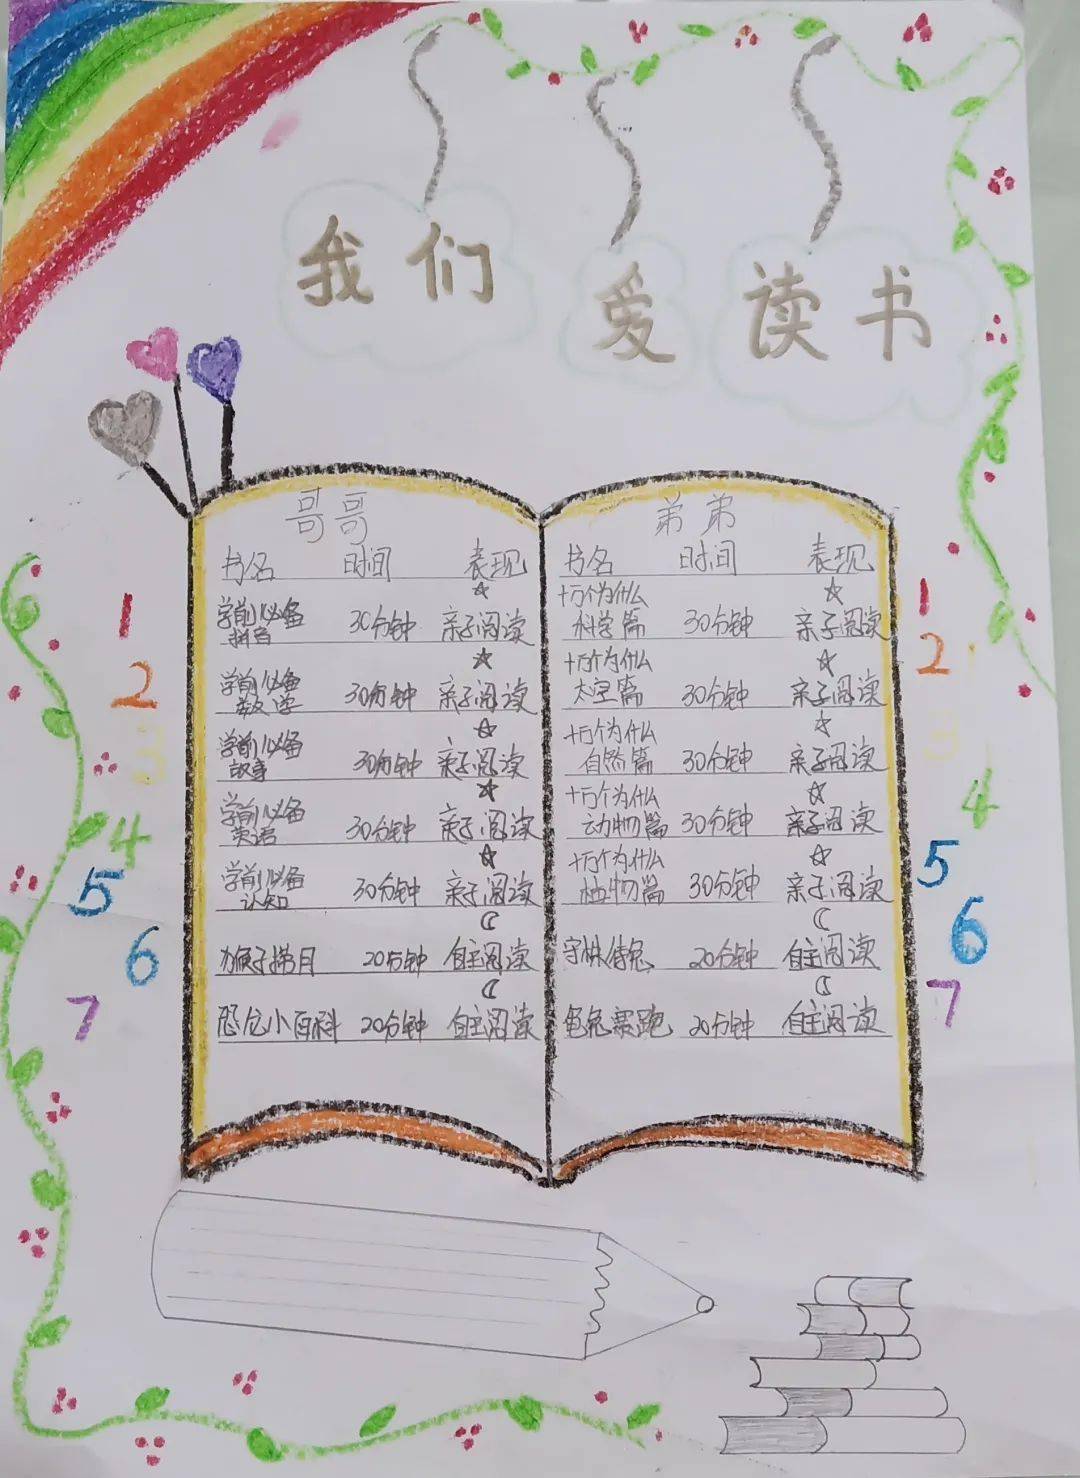 我们
爱读书
哥哥
书名 时间 表现
1 学前必备
拼音 30分钟 亲子阅读
2 学前必备
数学 30分钟 亲子阅读
3 学前必备
故事 30分钟 亲子阅读
4 学前必备
英语 30分钟 亲子阅读
5 学前必备
认知 30分钟 亲子阅读
6 猴子捞月 20分钟 自主阅读
7 恐龙小百科 20分钟 自主阅读
弟弟
书名 时间 表现
十万个为什么 1
科学篇 30分钟 亲子阅读
十万个为什么 2
太空篇 30分钟 亲子阅读
十万个为什么 3
自然篇 30分钟 亲子阅读
十万个为什么 4
动物篇 30分钟 亲子阅读
十万个为什么 5
植物篇 30分钟 亲子阅读
守株待兔 20分钟 自主阅读 6
龟兔赛跑 20分钟 自主阅读 7